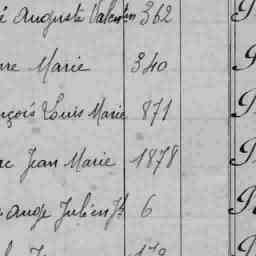 é Auguste Valentin 362
rre Marie 340
nçois Louis Marie 871
ac Jean Marie 1878
Ange Julien Jh 6